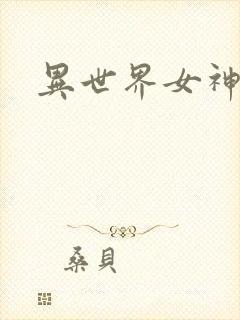 異世界女神
桑貝